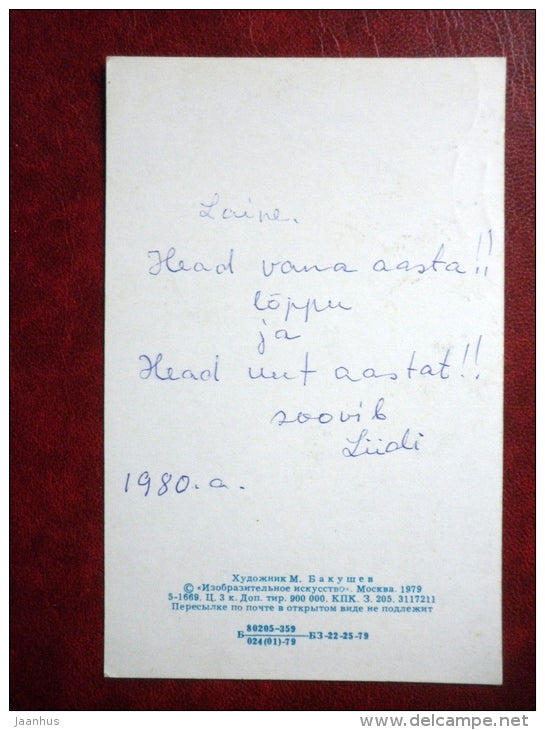 Laine.
Head vana aasta!!
lõppu
ja
Head uut aastat!!
soovib
Liidi
1980.a.
Художник М. Бакушев
© «Изобразительное искусство». Москва. 1979
5-1669. Ц. 3 к. Доп. тир. 900 000. КПК. З. 205. 3117211
Пересылке по почте в открытом виде не подлежит
Б 80205-359 БЗ-22-25-79
024(01)-79
jaanhus
www.delcampe.net